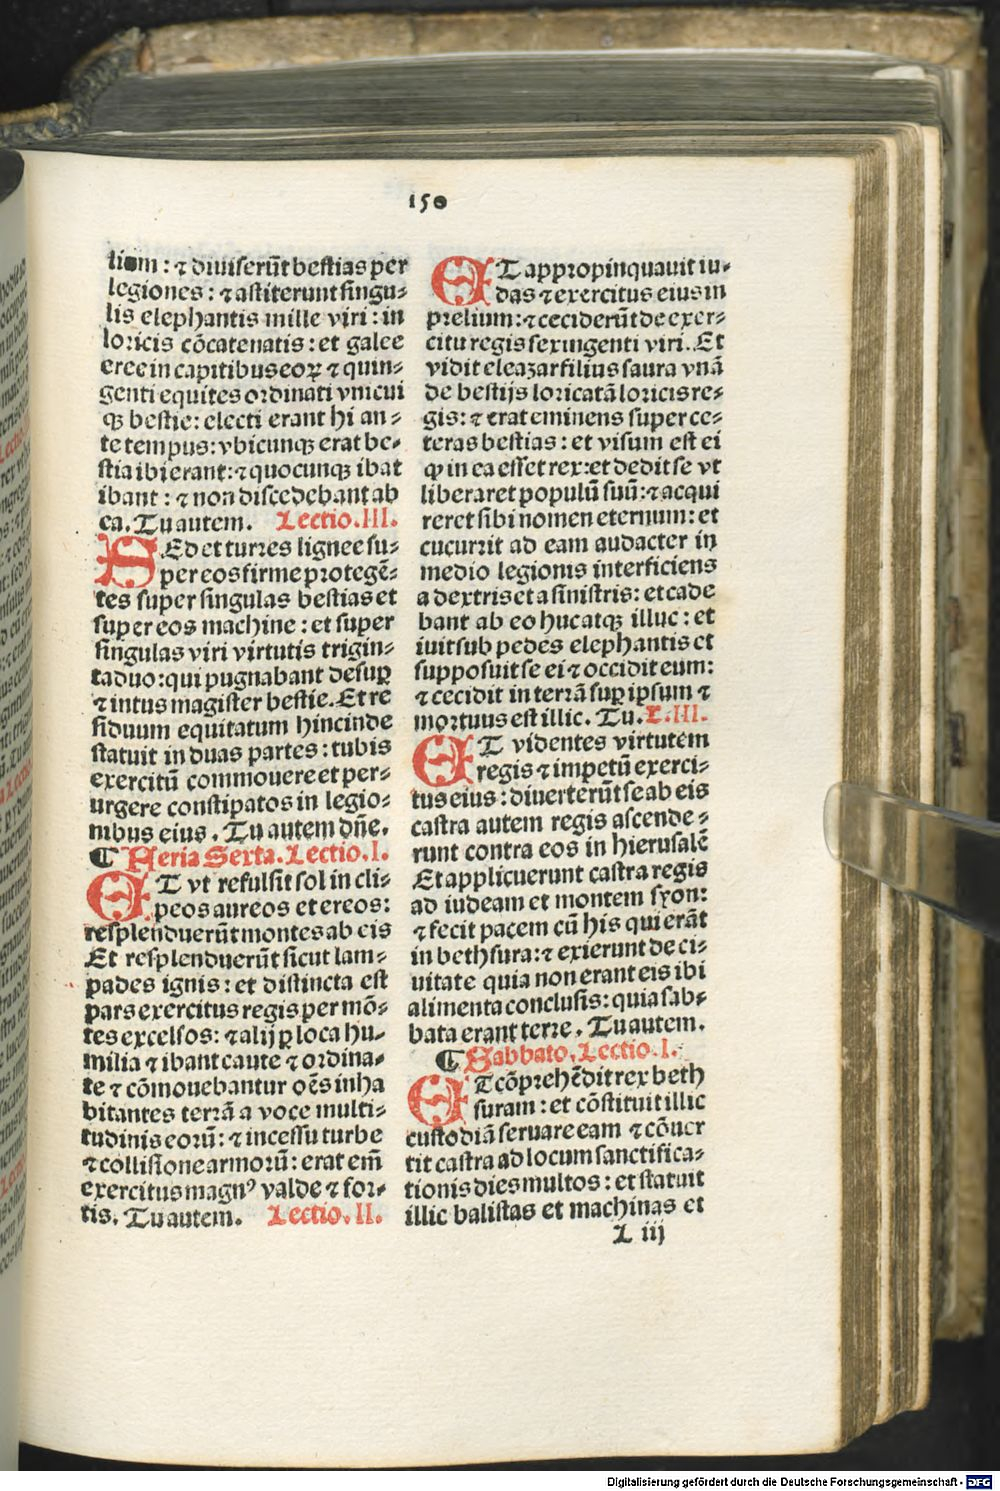 150
lium: ⁊ diuiserūt bestias per
legiones: ⁊ astiterunt singu⸗
lis elephantis mille viri: in
loricis cōcatenatis: et galee
eree in capitibus eoꝝ ⁊ quin⸗
genti equites ordinati vnicui
qꝫ bestie: electi erant hi an⸗
te tempus: vbicunqꝫ erat be⸗
stia ibi erant: ⁊ quocunqꝫ ibat
ibant: ⁊ non discedebant ab
ea. Tu autem. Lectio. III.
SEd et turres lignee su⸗
per eos firme protegē⸗
tes super singulas bestias et
super eos machine: et super
singulas viri virtutis trigin⸗
ta duo: qui pugnabant desuꝑ
⁊ intus magister bestie. Et re
siduum equitatum hincinde
statuit in duas partes: tubis
exercitū commouere et per⸗
urgere constipatos in legio⸗
nibus eius. Tu autem dñe.
¶ Feria Sexta. Lectio. I.
ET vt refulsit sol in cli⸗
peos aureos et ereos:
resplenduerūt montes ab eis
Et resplenduerūt sicut lam⸗
pades ignis: et distincta est
pars exercitus regis per mō⸗
tes excelsos: ⁊ alij ꝑ loca hu⸗
milia ⁊ ibant caute ⁊ ordina⸗
te ⁊ cōmouebantur oēs inha
bitantes terrā a voce multi⸗
tudinis eorū: ⁊ incessu turbe
⁊ collisione armorū: erat em̄
exercitus magnꝰ valde ⁊ for⸗
tis. Tu autem. Lectio. II.
ET appropinquauit iu⸗
das ⁊ exercitus eius in
prelium: ⁊ ceciderūt de exer⸗
citu regis sexingenti viri. Et
vidit eleazar filius saura vnā
de bestijs loricatā loricis re⸗
gis: ⁊ erat eminens super ce⸗
teras bestias: et visum est ei
ꝙ in ea esset rex: et dedit se vt
liberaret populū suū: ⁊ acqui
reret sibi nomen eternum: et
cucurrit ad eam audacter in
medio legionis interficiens
a dextris et a sinistris: et cade
bant ab eo huc atqꝫ illuc: et
iuit sub pedes elephantis et
supposuit se ei ⁊ occidit eum:
⁊ cecidit in terrā suꝑ ipsum ⁊
mortuus est illic. Tu. L. III.
ET videntes virtutem
regis ⁊ impetū exerci⸗
tus eius: diuerterūt se ab eis
castra autem regis ascende⸗
runt contra eos in hierusalē
Et applicuerunt castra regis
ad iudeam et montem syon:
⁊ fecit pacem cū his qui erāt
in bethsura: ⁊ exierunt de ci⸗
uitate quia non erant eis ibi
alimenta conclusis: quia sab⸗
bata erant terre. Tu autem.
¶ Sabbato. Lectio. I.
ET cōprehēdit rex beth
suram: et cōstituit illic
custodiā seruare eam ⁊ cōuer
tit castra ad locum sanctifica⸗
tionis dies multos: et statuit
illic balistas et machinas et
L iij
Digitalisierung gefördert durch die Deutsche Forschungsgemeinschaft - DFG